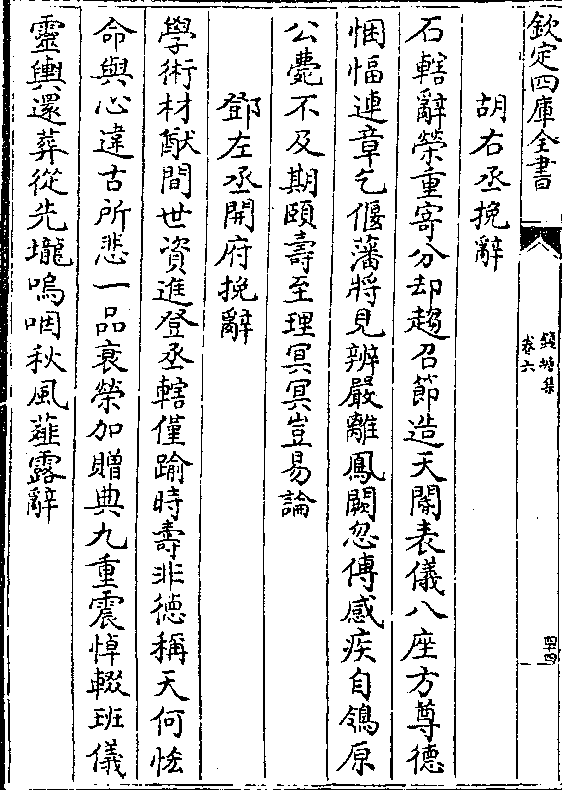 欽定四庫全書
錢塘集
卷六
四十四
胡右丞挽辭
石轄辭榮重寄分却趨召節造天閽表儀八座方尊德
悃愊連章乞偃藩將見辦嚴離鳳闕忽傳感疾自鴒原
公薨不及期頥壽至理冥冥豈易論
鄧左丞開府挽辭
學術材猷間世資進登丞轄僅踰時壽非徳稱天何恡
命與心違古所悲一品衮榮加贈典九重震悼輟班儀
靈輿還葬從先壠嗚咽秋風薤露辭